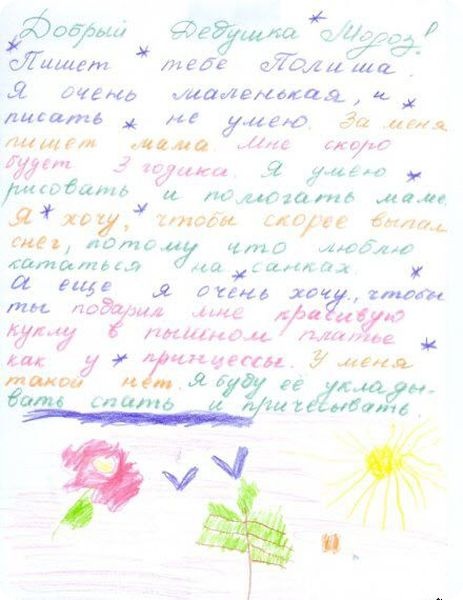 Добрый Дедушка Мороз!
Пишет тебе Полиша.
Я очень маленькая, и
писать не умею. За меня
пишет мама. Мне скоро
будет 3 годика. Я умею
рисовать и помогать маме.
Я хочу, чтобы скорее выпал
снег, потому что люблю
кататься на санках.
А еще я очень хочу, чтобы
ты подарил мне красивую
куклу в пышном платье
как у принцессы. У меня
такой нет. Я буду её уклады-
вать спать и причесывать.